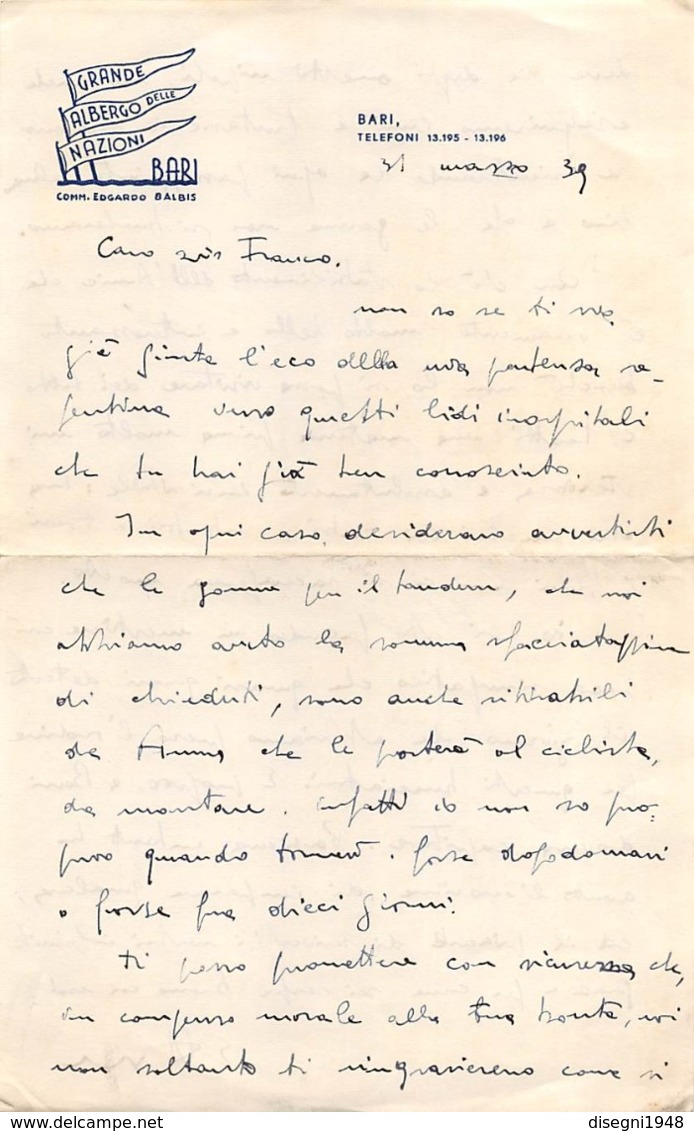 GRANDE
ALBERGO DELLE
NAZIONI
BARI
COMM. EDGARDO BALBIS
BARI,
TELEFONI 13.195 - 13.196
31 marzo 39
Caro Franco,
non so se ti sia
già giunta l'eco della mia partenza re-
pentina verso questi lidi inospitali
che tu hai già ben conosciuto.
In ogni caso, desideravo avvertirti
che le gomme per il tandem, che noi
abbiamo avuto la somma sfacciataggine
di chiederti, sono anche ritirabili
da che le porterà al ciclista,
da montare. Infatti io non so pro-
prio quando tornerò. Forse dopodomani
o forse fra dieci giorni.
Ti posso promettere con sicurezza che,
in compenso morale alla tua bontà, noi
non soltanto ti ringrazieremo come si
www.delcampe.net
disegni1948